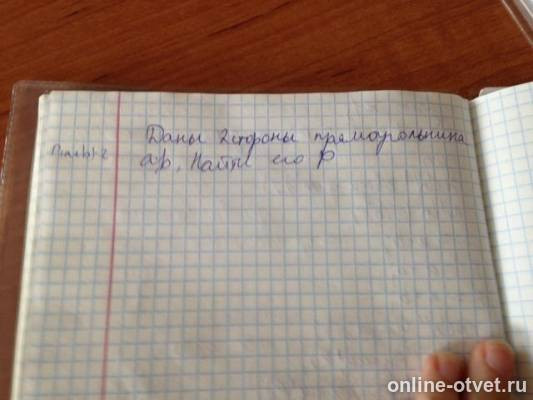 Даны 2 стороны прямоугольника
а,р. Найти его Р
online-otvet.ru